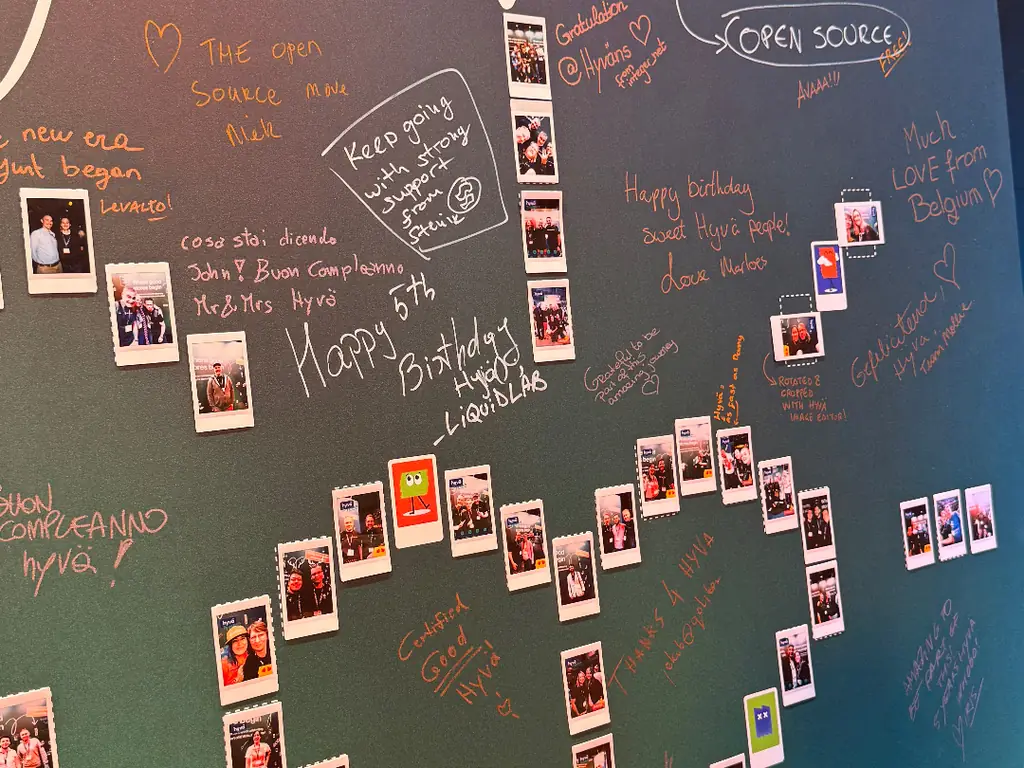 THE OPEN
SOURCE MOVE
NIEK
new era
began
LEVALTO!
cosa stai dicendo
John? Buon Compleanno
Mr & Mrs Hyvä
Keep going
with strong
support
from
Happy 5th
Birthday
Hyvä
-LIQUIDLAB
Gratulation
@Hyväns
from
integer_net
OPEN SOURCE
FREE!
AVAAA!!!
Much
LOVE from
Belgium
Happy birthday
sweet Hyvä people!
Love Marloes
Gefeliciteerd!
Hyvä
Team Mollie
Grateful to be
part of this
amazing journey
Hyvä:
as fast as
ROTATED &
CROPPED
WITH HYVÄ
IMAGE EDITOR!
BUON
COMPLEANNO
hyvä!
Certified
GOOD
Hyvä!
THANKS 4 HYVA
AMAZING TO
BE PART OF
THIS
hyvä
hyvä
hyvä